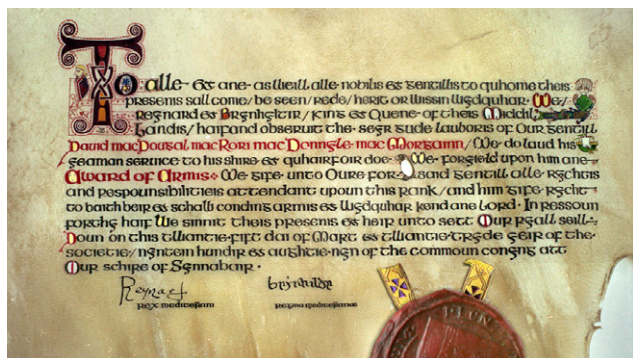 To alle & ane as weill alle nobilis & gentillis to quhome theis
presens sall come/ be seen/ rede/ herit or wissin wgdquhar. We/
Regnard & Brgnhgtir/ king & Quene of theis Middil
Landis/ haifand obseruit the segr gude lauboris of Our gentill
David macDougal macRori mac Donngle mac Morgainn/ We do laud his
geaman seruice to his shire & quhairfoir doe We forgield upon him ane
Award of Armis We gife unto Oure forsaid gentill alle rgchtis
and responsibilitieis attendant upoun this rank/ and him gife rgcht
to baith beir & schalli conding armis & wgdquhar kend ane Lord. In ressoun
forthg haif We sinnit theis presens & heir unto sett Our rgall seill
Doun on this twantie-fift dai of Mart & twantie-trgde geir of the
societie/ ngntein hundir & aughtie-ngn of the commoun congng att
Our schire of Sgnnabair.
Reynard
Brynhildr
rex mediterrani
regina mediterranea